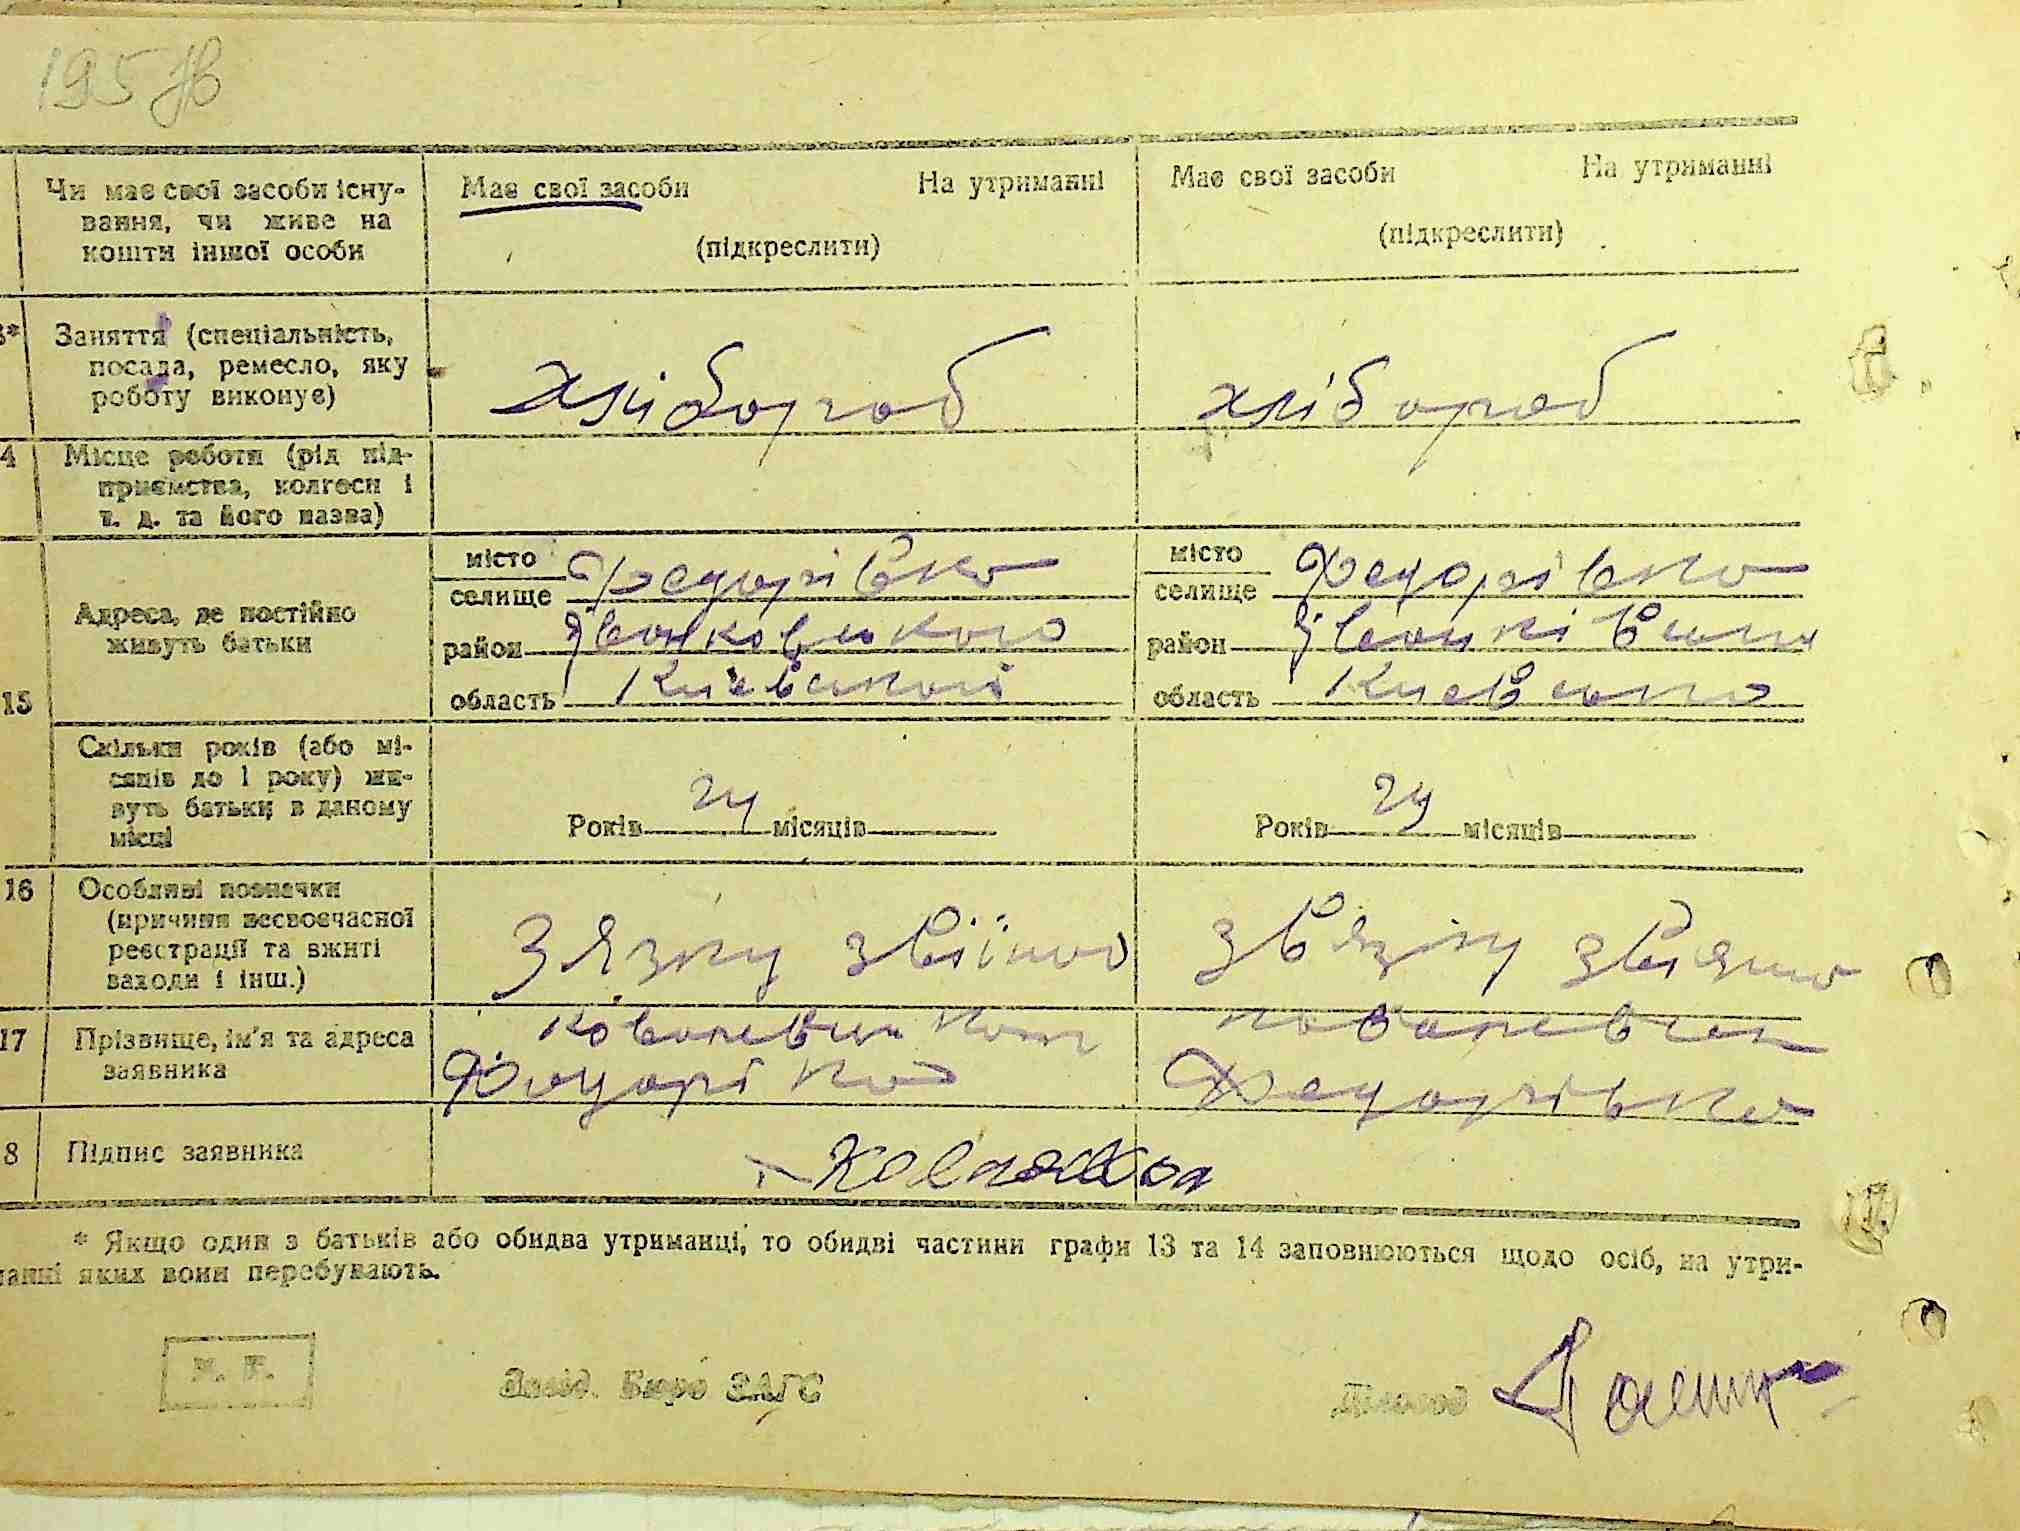 195
Чи має свої засоби існу-
вання, чи живе на
кошти іншої особи
Має свої засоби На утриманні
(підкреслити)
Має свої засоби На утриманні
(підкреслити)
3* Заняття (спеціальність,
посада, ремесло, яку
роботу виконує)
хлібороб
хлібороб
4 Місце роботи (рід під-
приємства, колгосп і
т. д. та його назва)
15
Адреса, де постійно
живуть батьки
місто
селище Федорівка
район Іванковського
область Київської
місто
селище Федорівка
район
область
Скільки років (або мі-
сяців до 1 року) жи-
вуть батьки в даному
місці
Років 24 місяців
Років 24 місяців
16 Особливі позначки
(причини несвоєчасної
реєстрації та вжиті
заходи і інш.)
Звязку звійною
Звязку
17 Прізвище, ім'я та адреса
заявника
Федорівка
8 Підпис заявника
* Якщо один з батьків або обидва утриманці, то обидві частини графи 13 та 14 заповнюються щодо осіб, на утри-
манні яких вони перебувають.
М. П.
Завід. Бюро ЗАГС
Діловод